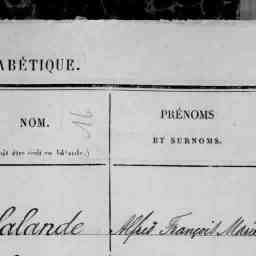 ABÉTIQUE.
NOM.
16
PRÉNOMS
ET SURNOMS.
être écrit en bâtarde.)
alande
Alfred François Marie